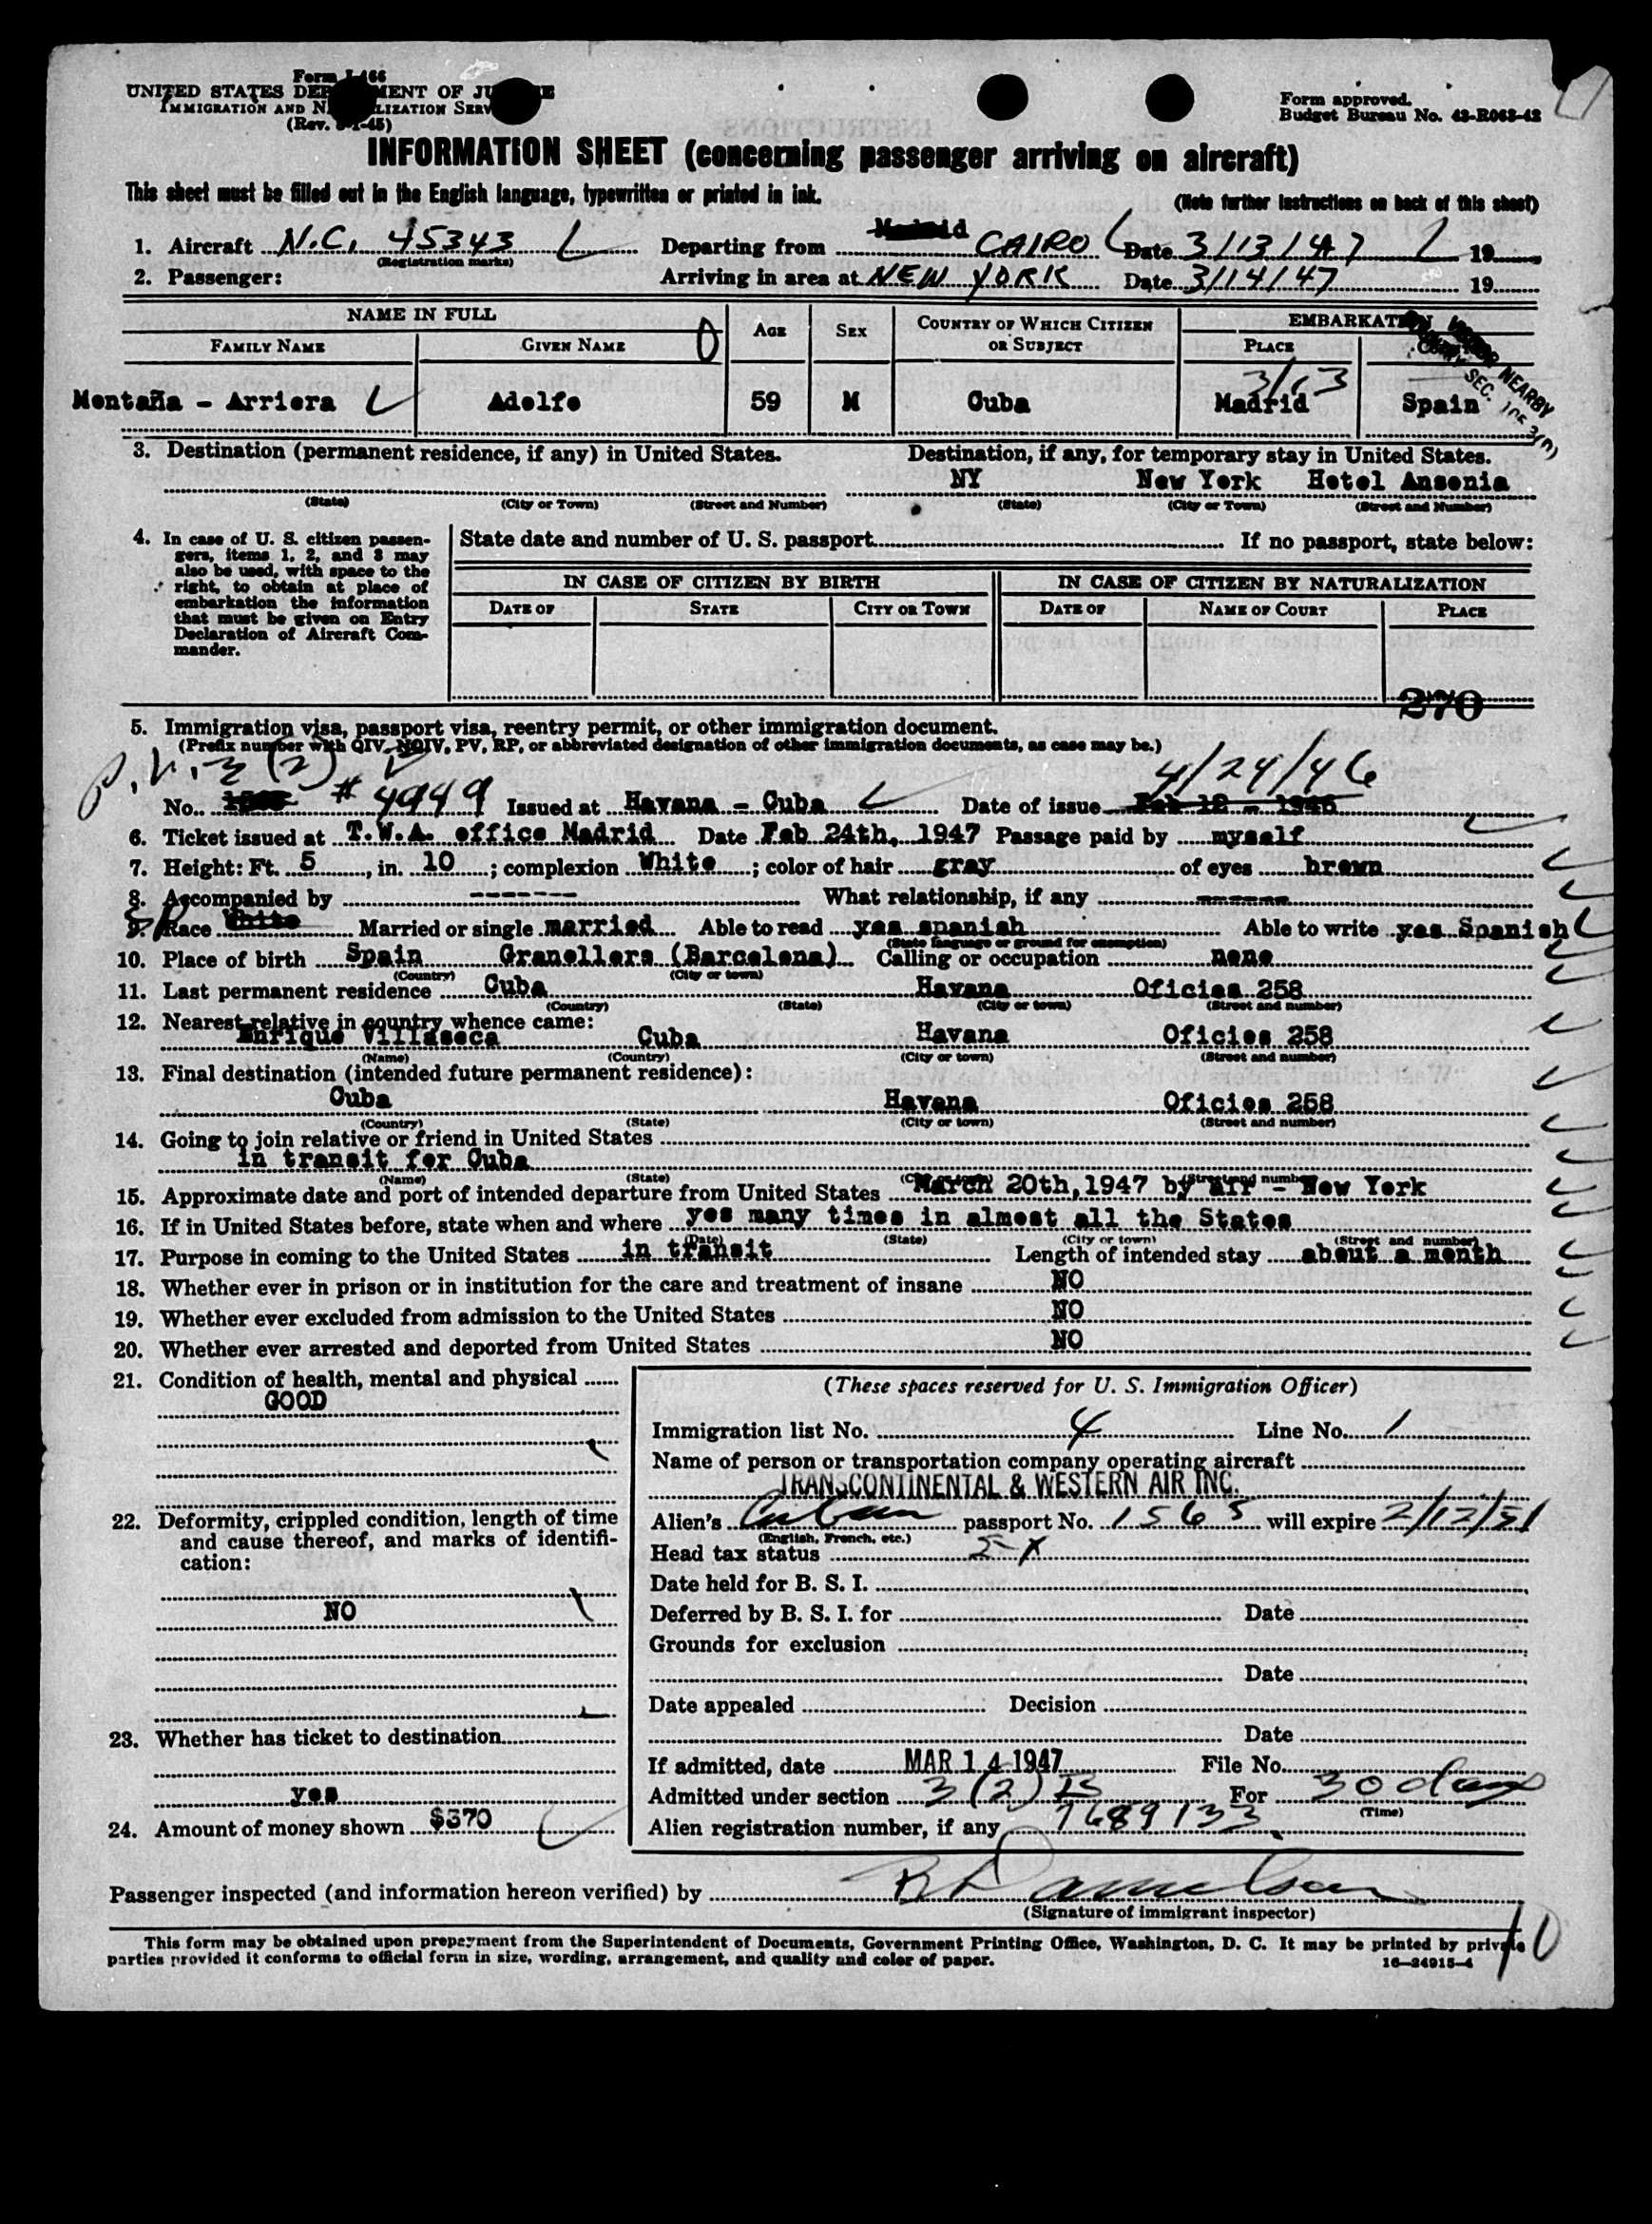 Form I-466
UNITED STATES DEPARTMENT OF JUSTICE
IMMIGRATION AND NATURALIZATION SERVICE
(Rev. -1-45)
Form approved.
Budget Bureau No. 43-R063-42
INFORMATION SHEET (concerning passenger arriving on aircraft)
This sheet must be filled out in the English language, typewritten or printed in ink.
(Note further instructions on back of this sheet)
1. Aircraft N.C. 45343 Departing from Madrid CAIRO Date 3/13/47 19
(Registration marks)
2. Passenger: Arriving in area at NEW YORK Date 3/14/47 19
NAME IN FULL AGE SEX COUNTRY OF WHICH CITIZEN OR SUBJECT EMBARKATION
FAMILY NAME GIVEN NAME PLACE
3/13
Montaña - Arriera Adolfo 59 M Cuba Madrid Spain
NEARBY
SEC.
3. Destination (permanent residence, if any) in United States. Destination, if any, for temporary stay in United States.
NY New York Hotel Ansonia
(State) (City or Town) (Street and Number) (State) (City or Town) (Street and Number)
4. In case of U. S. citizen passengers, items 1, 2, and 3 may also be used, with space to the right, to obtain at place of embarkation the information that must be given on Entry Declaration of Aircraft Commander.
State date and number of U. S. passport If no passport, state below:
IN CASE OF CITIZEN BY BIRTH IN CASE OF CITIZEN BY NATURALIZATION
DATE OF STATE CITY OR TOWN DATE OF NAME OF COURT PLACE
270
5. Immigration visa, passport visa, reentry permit, or other immigration document.
(Prefix number with QIV, NQIV, PV, RP, or abbreviated designation of other immigration documents, as case may be.)
P.V. 3(2) 4/24/46
No. # 4949 Issued at Havana - Cuba Date of issue Feb 12 - 1946
6. Ticket issued at T.W.A. office Madrid Date Feb 24th, 1947 Passage paid by myself
7. Height: Ft. 5, in. 10; complexion White; color of hair gray of eyes brown
8. Accompanied by ------- What relationship, if any ------
9. Race White Married or single married Able to read yes spanish Able to write yes Spanish
(State language or ground for exemption)
10. Place of birth Spain Granollers (Barcelona) Calling or occupation none
(Country) (City or town)
11. Last permanent residence Cuba Havana Oficios 258
(Country) (State) (City or town) (Street and number)
12. Nearest relative in country whence came:
Enrique Villaseca Cuba Havana Oficios 258
(Name) (Country) (City or town) (Street and number)
13. Final destination (intended future permanent residence):
Cuba Havana Oficios 258
(Country) (State) (City or town) (Street and number)
14. Going to join relative or friend in United States
in transit for Cuba
(Name) (State) (City or town) (Street and number)
15. Approximate date and port of intended departure from United States March 20th, 1947 by air - New York
16. If in United States before, state when and where yes many times in almost all the States
(Date) (State) (City or town) (Street and number)
17. Purpose in coming to the United States in transit Length of intended stay about a month
18. Whether ever in prison or in institution for the care and treatment of insane NO
19. Whether ever excluded from admission to the United States NO
20. Whether ever arrested and deported from United States NO
21. Condition of health, mental and physical
GOOD
22. Deformity, crippled condition, length of time and cause thereof, and marks of identification:
NO
23. Whether has ticket to destination
yes
24. Amount of money shown $370
(These spaces reserved for U. S. Immigration Officer)
Immigration list No. 4 Line No. 1
Name of person or transportation company operating aircraft
TRANSCONTINENTAL & WESTERN AIR INC.
Alien's Cuban passport No. 1565 will expire 2/12/51
(English, French, etc.)
Head tax status
Date held for B. S. I.
Deferred by B. S. I. for Date
Grounds for exclusion
Date
Date appealed Decision
Date
If admitted, date MAR 14 1947 File No.
Admitted under section 3(2)B For 30 days
(Time)
Alien registration number, if any 7689133
Passenger inspected (and information hereon verified) by
(Signature of immigrant inspector)
This form may be obtained upon prepayment from the Superintendent of Documents, Government Printing Office, Washington, D. C. It may be printed by private
parties provided it conforms to official form in size, wording, arrangement, and quality and color of paper.
16—24915-4